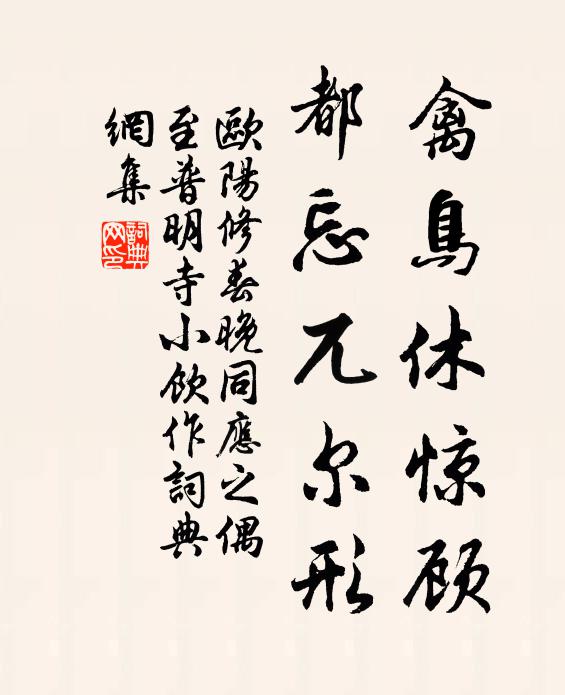 禽鳥休惊顾
都忘兀尔形
歐陽修春晚同應之偶
至普明寺小飲作詞典
網集
詞典网印